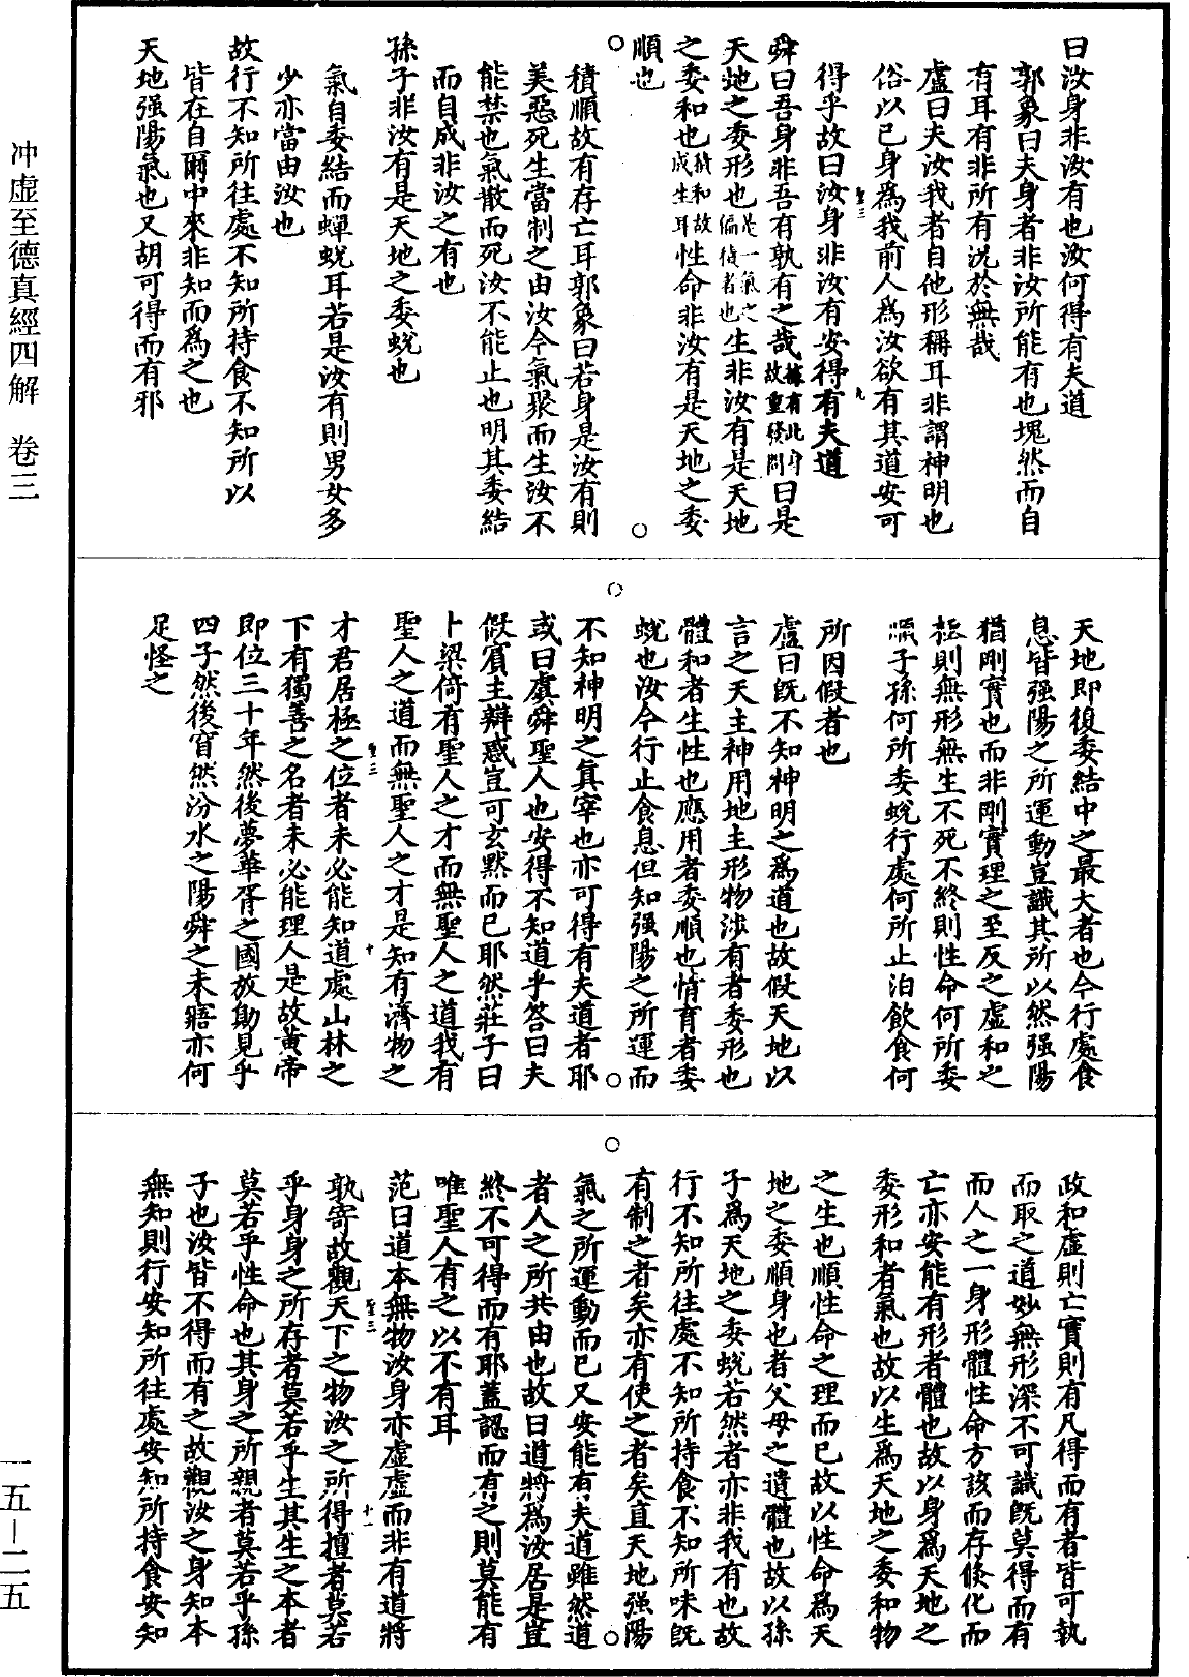 曰汝身非汝有也汝何得有夫道
郭象曰夫身者非汝所能有也塊然而自
有耳有非所有況於無哉
盧曰夫汝我者自他形稱耳非謂神明也
俗以己身爲我前人爲汝欲有其道安可
得乎故曰汝身非汝有安得有夫道
舜曰吾身非吾有孰有之哉據有此身故重發問曰是
天地之委形也是一氣之偏積者也生非汝有是天地
之委和也積和故成生耳性命非汝有是天地之委
順也
積順故有存亡耳郭象曰若身是汝有則
美惡死生當制之由汝今氣聚而生汝不
能禁也氣散而死汝不能止也明其委結
而自成非汝之有也
孫子非汝有是天地之委蛻也
氣自委結而蟬蛻耳若是汝有則男女多
少亦當由汝也
故行不知所往處不知所持食不知所以
皆在自爾中來非知而爲之也
天地强陽氣也又胡可得而有邪
天地即復委結中之最大者也今行處食
息皆强陽之所運動豈識其所以然强陽
猶剛實也而非剛實理之至反之虛和之
極則無形無生不死不終則性命何所委
順子孫何所委蛻行處何所止泊飲食何
所因假者也
盧曰既不知神明之爲道也故假天地以
言之天主神用地主形物涉有者委形也
體和者生性也應用者委順也情育者委
蛻也汝今行止食息但知强陽之所運而
不知神明之眞宰也亦可得有夫道者耶
或曰虞舜聖人也安得不知道乎答曰夫
假賓主辯惑豈可玄默而已耶然莊子曰
卜梁倚有聖人之才而無聖人之道我有
聖人之道而無聖人之才是知有濟物之
才君居極之位者未必能知道處山林之
下有獨善之名者未必能理人是故黃帝
即位三十年然後夢華胥之國放勛見乎
四子然後窅然汾水之陽舜之未寤亦何
足怪之
政和虛則亡實則有凡得而有者皆可執
而取之道妙無形深不可識既莫得而有
而人之一身形體性命方該而存倏化而
亡亦安能有形者體也故以身爲天地之
委形和者氣也故以生爲天地之委和物
之生也順性命之理而已故以性命爲天
地之委順身也者父母之遺體也故以孫
子爲天地之委蛻若然者亦非我有也故
行不知所往處不知所持食不知所味既
有制之者矣亦有使之者矣直天地强陽
氣之所運動而已又安能有夫道雖然道
者人之所共由也故曰道將爲汝居是豈
終不可得而有耶蓋認而有之則莫能有
唯聖人有之以不有耳
范曰道本無物汝身亦虛虛而非有道將
孰寄故觀天下之物汝之所得擅者莫若
乎身身之所存者莫若乎生其生之本者
莫若乎性命也其身之所親者莫若乎孫
子也汝皆不得而有之故觀汝之身知本
無知則行安知所往處安知所持食安知
聖三
九
聖三
十
聖三
十一
冲虚至德真經四解　卷三
一五—二五